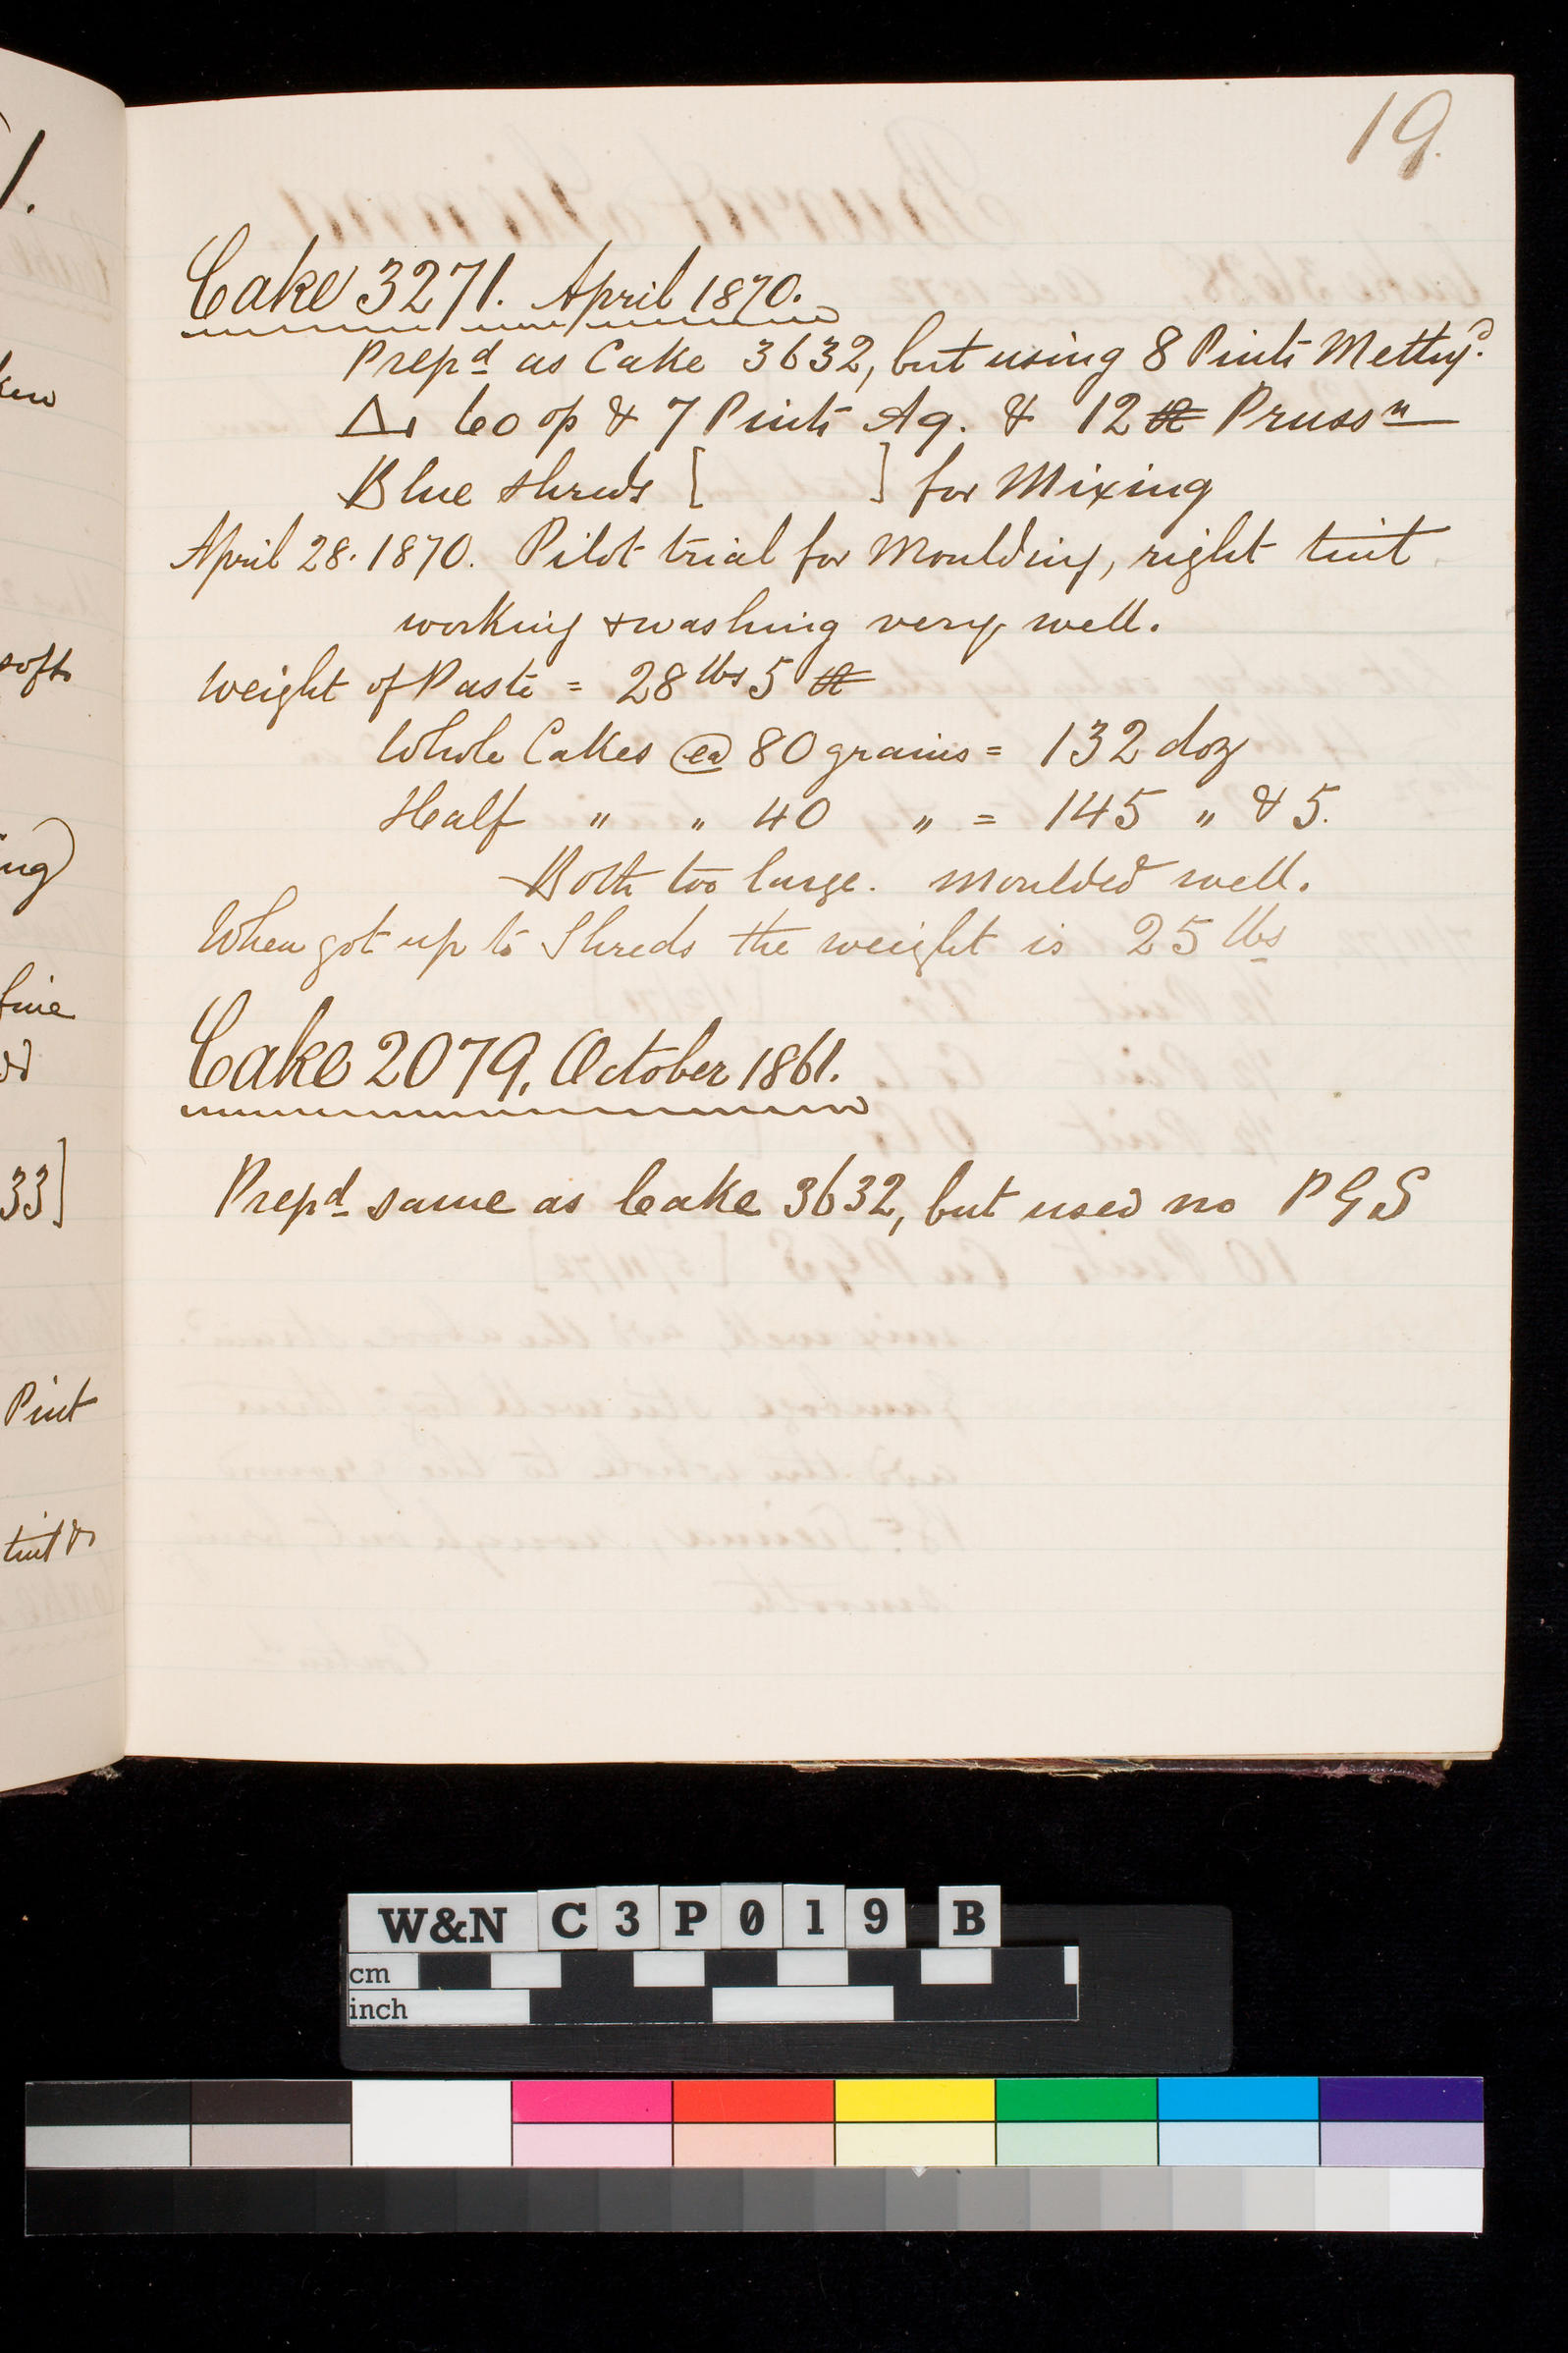 19.
Cake 3271. April 1870.
Prepd as Cake 3632, but using 8 Pints Methyd.
60 op & 7 Pints Aq. & 12 ℔ Prussn
Blue shreds [ ] for Mixing
April 28. 1870. Pilot trial for Moulding, right tint
working & washing very well.
Weight of Paste = 28 lbs 5 ℔
Whole Cakes @ 80 grains = 132 doz
Half " " 40 " = 145 " & 5.
Both too large. Moulded well.
When got up to Shreds the weight is 25 lbs
Cake 2079, October 1861.
Prepd same as Cake 3632, but used no PGS
1.
soft
ing)
fine
33]
Pint
tint &
W&N C3P019 B
cm
inch